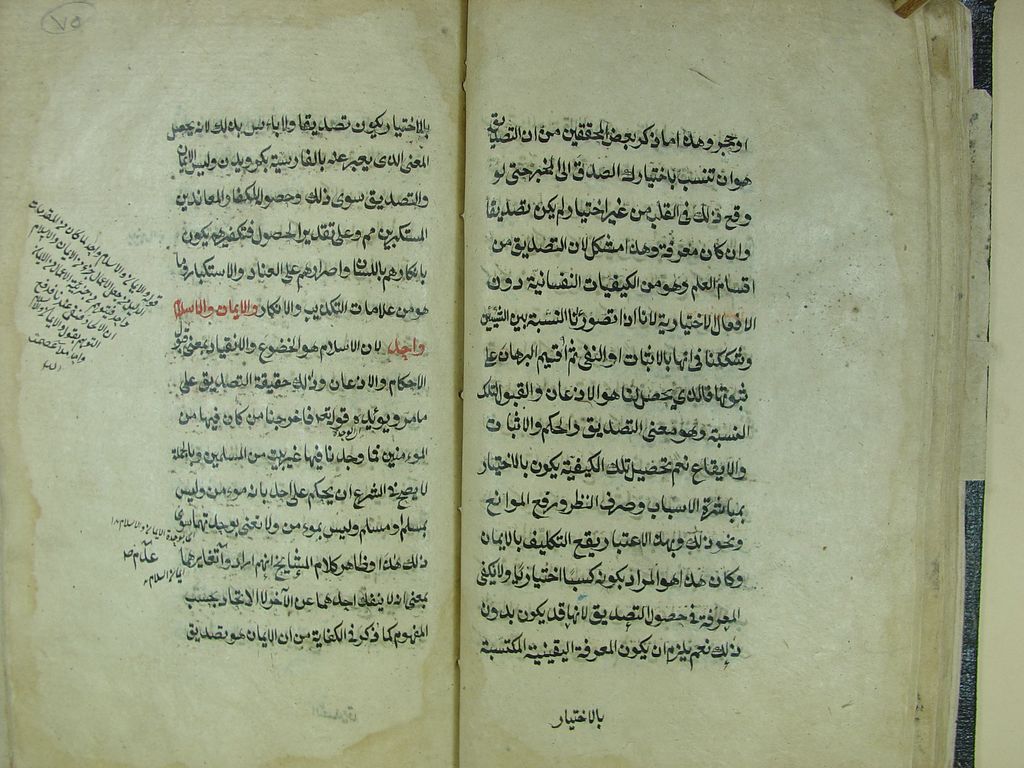 او حجر وهذا ما ذكر بعض المحققين من ان التصديق
هو ان تنسب باختيارك الصدق الى المخبر حتى لو
وقع ذلك فى القلب من غير اختيار لم يكن تصديقا
وان كان معرفة وهذا مشكل لان التصديق من
اقسام العلم وهو من الكيفيات النفسانية دون
الافعال الاختيارية لانا اذا تصورنا النسبة بين الشيئين
وشككنا فى انها بالاثبات او النفى ثم اقيم البرهان على
ثبوتها فالذى يحصل لنا هو الاذعان والقبول لتلك
النسبة وهو معنى التصديق والحكم والاثبات
والايقاع نعم تحصيل تلك الكيفية يكون بالاختيار
بمباشرة الاسباب وصرف النظر ورفع الموانع
ونحو ذلك وبهذا الاعتبار يقع التكليف بالايمان
وكان هذا هو المراد بكونه كسبيا اختياريا ولا يكفى
المعرفة فى حصول التصديق لانها قد يكون بدون
ذلك نعم يلزم ان يكون المعرفة اليقينية المكتسبة
بالاختيار
٧٥
بالاختيار يكون تصديقا ولا باءس بذلك لانه يحصل
المعنى الذى يعبر عنه بالفارسية بكرويدن وليس الايمان
والتصديق سوى ذلك وحصوله للكفار المعاندين
المستكبرين مم وعلى تقدير الحصول فتكفيرهم يكون
بانكارهم باللسان واصرارهم على العناد والاستكبار وما
هو من علامات التكذيب والانكار والايمان والاسلام
واحد لان الاسلام هو الخضوع والانقياد بمعنى قبول
الاحكام والاذعان وذلك حقيقة التصديق على
ما مر ويؤيده قوله تعه فاخرجنا من كان فيها من
الموءمنين فما وجدنا فيها غير بيت من المسلمين وبالجملة
لا يصح فى الشرع ان يحكم على احد بانه موءمن وليس
بمسلم او مسلم وليس بموءمن ولا نعنى بوحدتهما سوى
ذلك هذا وظاهر كلام المشايخ انهم ارادوا تغايرهما
بمعنى انه لا ينفك احدهما عن الآخر لا الاتحاد بحسب
المفهوم كما ذكر فى الكفاية من ان الايمان هو تصديق